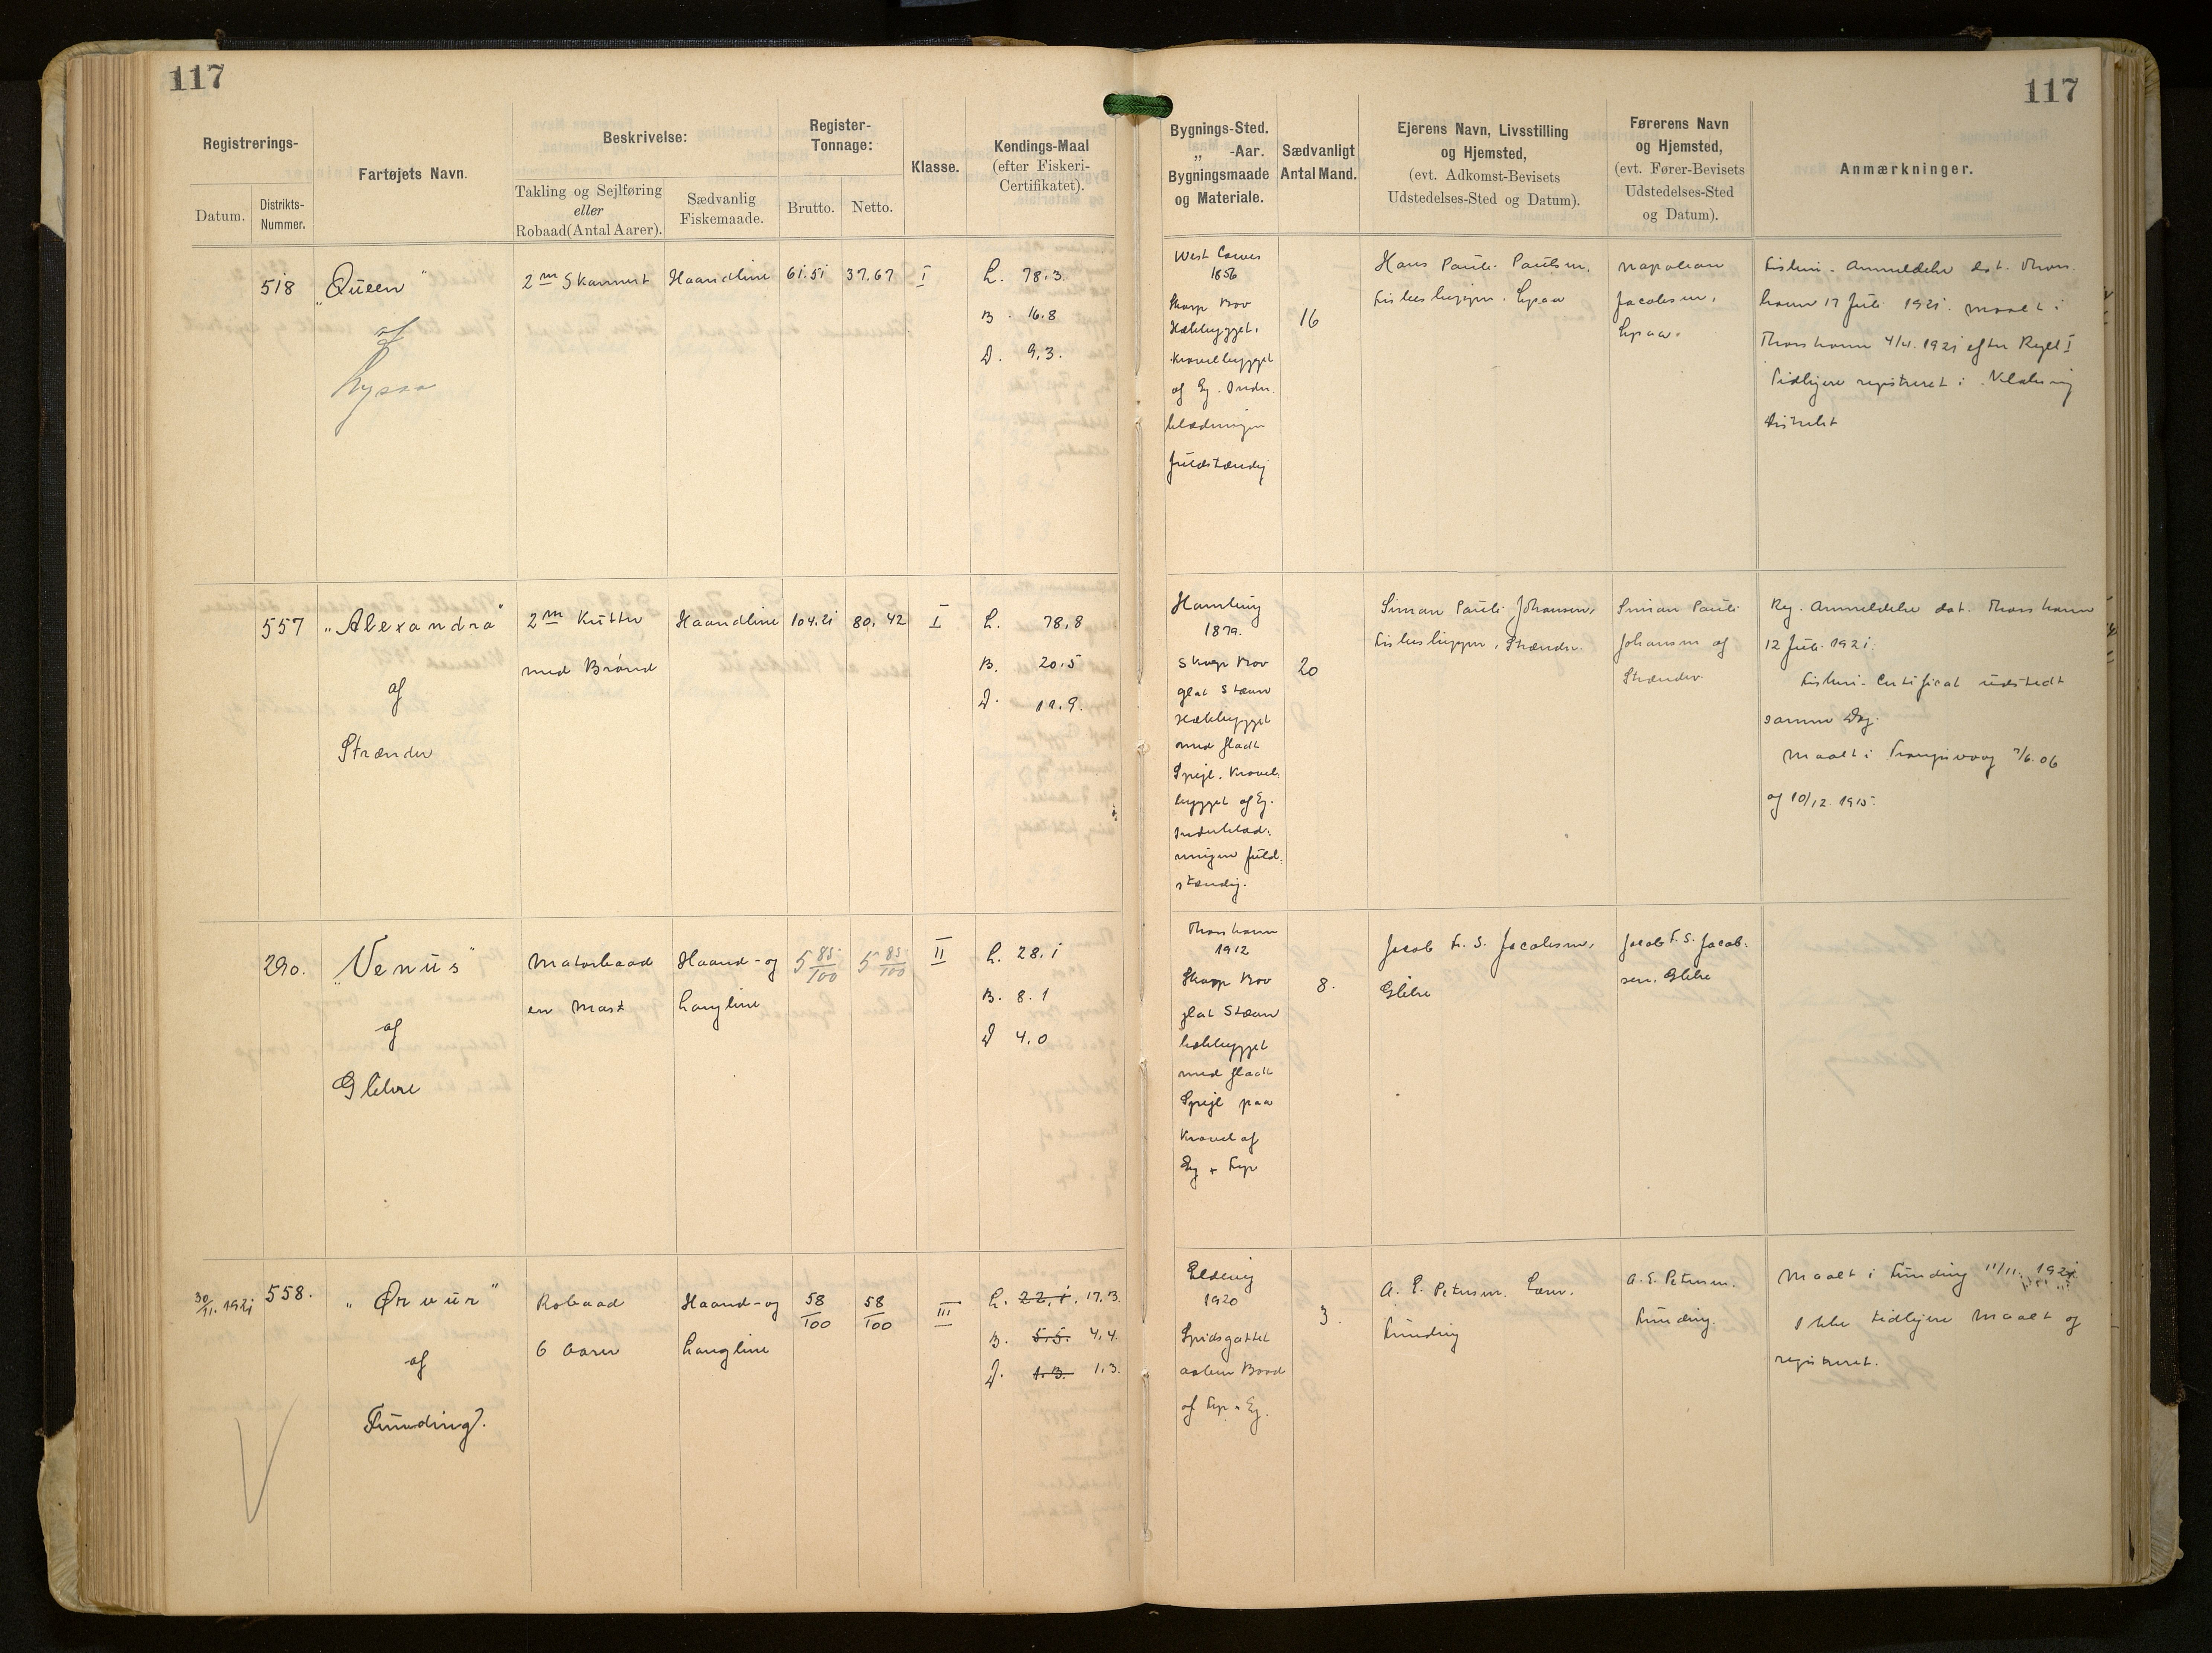 117
117
Registrerings-
Datum.
Distrikts-
Nummer.
Fartøjets Navn.
Beskrivelse:
Takling og Sejlføring
eller
Robaad(Antal Aarer).
Sædvanlig
Fiskemaade.
Register-
Tonnage:
Brutto.
Netto.
Klasse.
Kendings-Maal
(efter Fiskeri-
Certifikatet).
Bygnings-Sted.
„ -Aar.
Bygningsmaade
og Materiale.
Sædvanligt
Antal Mand.
Ejerens Navn, Livsstilling
og Hjemsted,
(evt. Adkomst-Bevisets
Udstedelses-Sted og Datum).
Førerens Navn
og Hjemsted,
(evt. Fører-Bevisets
Udstedelses-Sted
og Datum).
Anmærkninger.
518
„Queen"
af
Lopra
2 m Skonnert
Haandline
61.51
37.67
I
L. 78.3.
B. 16.8
D. 9.3.
West Cowes
1856
Skarp Bov
Hækbygget.
Kravelbygget
af Eg. Inder-
klædningen
fuldstændig
16
Hans Pauli Paulsen.
Fiskeskipper. Lopra
Napoleon
Jacobsen,
Lopra.
Fiskeri-Anmeldelse dat. Thors
havn 17 Juli 1921. maalt i
Thorshavn 4/4. 1921 efter Regel I
Tidligere registreret i
Distrikt
557
„Alexandra"
af
Strænder
2 m Kutter
med Brønd
Haandline
104.21
80.42
I
L. 78.8
B. 20.5
D. 11.9.
Hamburg
1879.
Skarp Bov
glat Stævn
Hækbygget
med fladt
Spejl. Kravel-
bygget af Eg.
Inderklæd-
ningen fuld-
stændig.
20
Simon Pauli Johansen,
Fiskeskipper, Strænder.
Simon Pauli
Johansen af
Strænder.
Reg. Anmeldelse dat. Thorshavn
12 Juli 1921.
Fiskeri-Certificat udstedt
samme Dag.
Maalt i Trangisvaag 7/6.06
og 10/12. 1915.
290.
„Venus"
af
Glibre
Motorbaad
en Mast
Haand- og
Langline
5 85/100
5 85/100
II
L. 28.1
B. 8.1
D 4.0
Thorshavn
1912
Skarp Bov
glat Stævn
hækbygget
med fladt
Spejl paa
Kravel af
Eg + Fyr
8.
Jacob F. S. Jacobsen,
Glibre
Jacob F. S. Jacob-
sen. Glibre
30/11. 1921
558.
„Ørvur"
af
Funding.
Robaad
6 Aarer
Haand- og
Langline
58/100
58/100
III
L. 22.1. 17.3.
B. 5.5. 4.4.
D. 1.3. 1.3.
Eldevig
1920
Spidsgattet
aaben Baad
af Fyr + Eg.
3.
A. E. Petersen. Lærer.
Funding
A. E. Petersen.
Funding.
Maalt i Funding 11/11. 1921
Ikke tidligere maalt og
registreret.